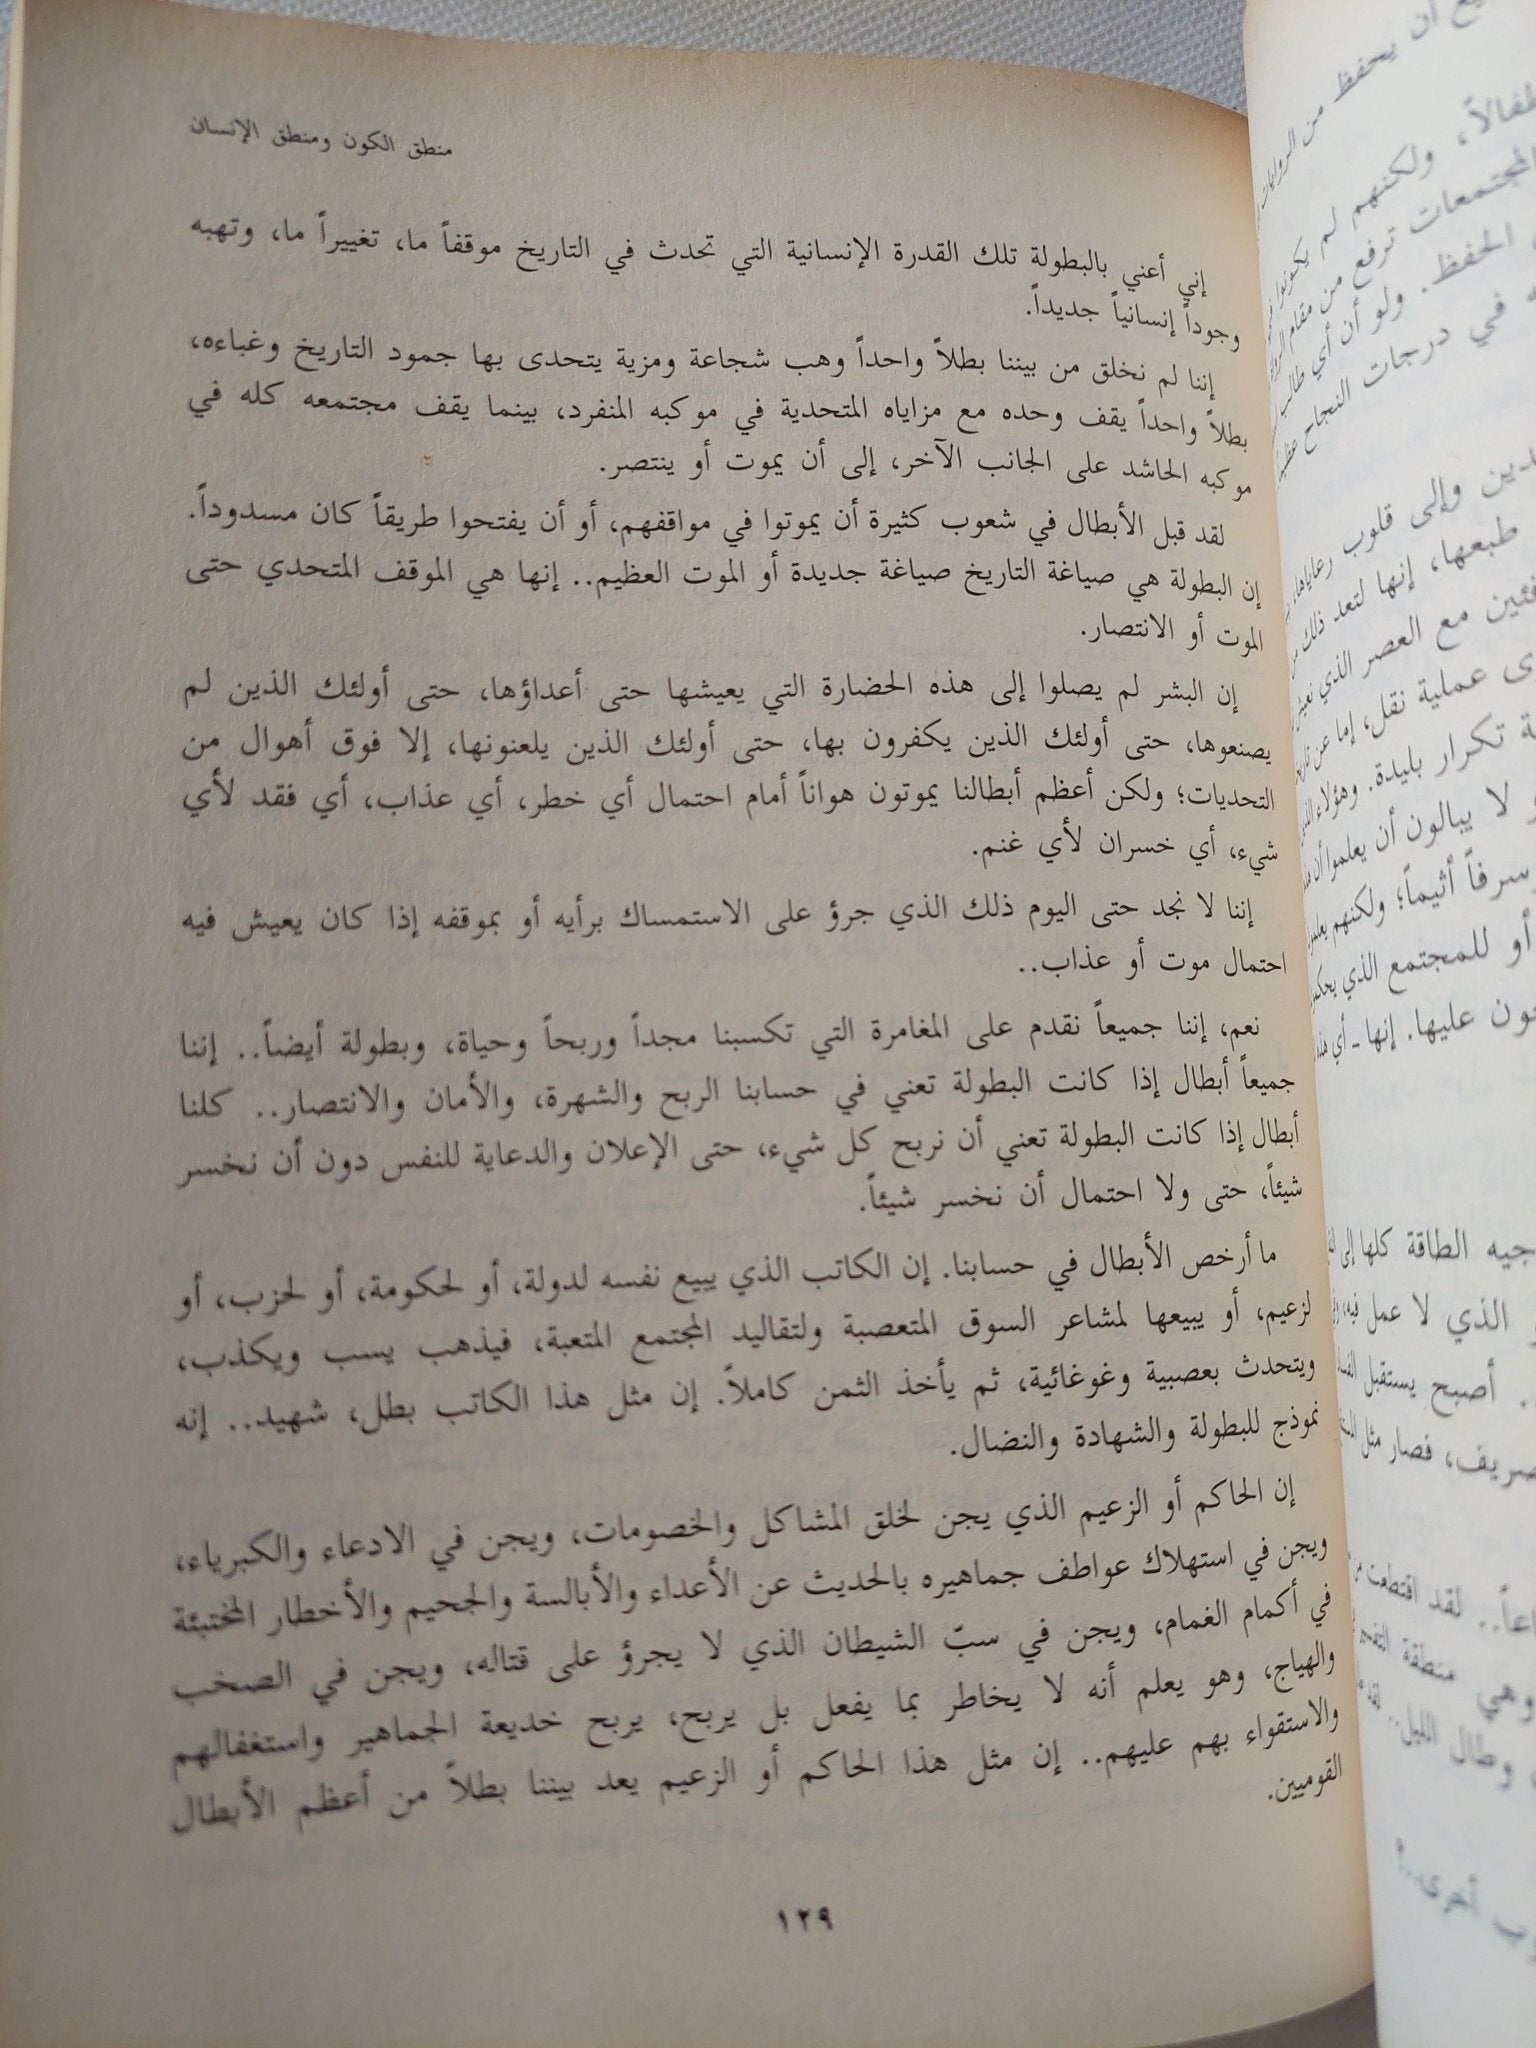 منطق الكون ومنطق الإنسان
إني أعني بالبطولة تلك القدرة الإنسانية التي تحدث في التاريخ موقفاً ما، تغييراً ما، وتهبه
وجوداً إنسانياً جديداً.
إننا لم نخلق من بيننا بطلاً واحداً وهب شجاعة ومزية يتحدى بها جمود التاريخ وغباءه،
بطلاً واحداً يقف وحده مع مزاياه المتحدية في موكبه المنفرد، بينما يقف مجتمعه كله في
موكبه الحاشد على الجانب الآخر، إلى أن يموت أو ينتصر.
لقد قبل الأبطال في شعوب كثيرة أن يموتوا في مواقفهم، أو أن يفتحوا طريقاً كان مسدوداً.
إن البطولة هي صياغة التاريخ صياغة جديدة أو الموت العظيم.. إنها هي الموقف المتحدي حتى
الموت أو الانتصار.
إن البشر لم يصلوا إلى هذه الحضارة التي يعيشها حتى أعداؤها، حتى أولئك الذين لم
يصنعوها، حتى أولئك الذين يكفرون بها، حتى أولئك الذين يلعنونها، إلا فوق أهوال من
التحديات؛ ولكن أعظم أبطالنا يموتون هواناً أمام احتمال أي خطر، أي عذاب، أي فقد لأي
شيء، أي خسران لأي غنم.
إننا لا نجد حتى اليوم ذلك الذي جرؤ على الاستمساك برأيه أو بموقفه إذا كان يعيش فيه
احتمال موت أو عذاب..
نعم، إننا جميعاً نقدم على المغامرة التي تكسبنا مجداً وربحاً وحياة، وبطولة أيضاً.. إننا
جميعاً أبطال إذا كانت البطولة تعني في حسابنا الربح والشهرة، والأمان والانتصار.. كلنا
أبطال إذا كانت البطولة تعني أن نربح كل شيء، حتى الإعلان والدعاية للنفس دون أن نخسر
شيئاً، حتى ولا احتمال أن نخسر شيئاً.
ما أرخص الأبطال في حسابنا. إن الكاتب الذي يبيع نفسه لدولة، أو لحكومة، أو لحزب، أو
لزعيم، أو يبيعها لمشاعر السوق المتعصبة ولتقاليد المجتمع المتعبة، فيذهب يسب ويكذب،
ويتحدث بعصبية وغوغائية، ثم يأخذ الثمن كاملاً. إن مثل هذا الكاتب بطل، شهيد.. إنه
نموذج للبطولة والشهادة والنضال.
إن الحاكم أو الزعيم الذي يجن لخلق المشاكل والخصومات، ويجن في الادعاء والكبرياء،
ويجن في استهلاك عواطف جماهيره بالحديث عن الأعداء والأبالسة والجحيم والأخطار المختبئة
في أكمام الغمام، ويجن في سبّ الشيطان الذي لا يجرؤ على قتاله، ويجن في الصخب
والهياج، وهو يعلم أنه لا يخاطر بما يفعل بل يربح، يربح خديعة الجماهير واستغفالهم
والاستقواء بهم عليهم.. إن مثل هذا الحاكم أو الزعيم يعد بيننا بطلاً من أعظم الأبطال
القوميين.
١٢٩
أن يحفظ من الروايات
ولكنهم لم يكونوا
المجتمعات ترفع من مقام
الحفظ. ولو أن أي طالب
في درجات النجاح
وإلى قلوب رعاياها،
طبعها، إنها لتعد ذلك
مع العصر الذي نعيش
عملية نقل، إما عن
تكرار بليدة. وهؤلاء
لا يبالون أن يعلموا أن
سرفاً أثيماً؛ ولكنهم
أو للمجتمع الذي
عليها. إنها ـ أي
الطاقة كلها إلى
الذي لا عمل فيه،
أصبح يستقبل
فصار مثل
لقد اقتطعت
وهي منطقة
وطال الليل..
أخرى..؟